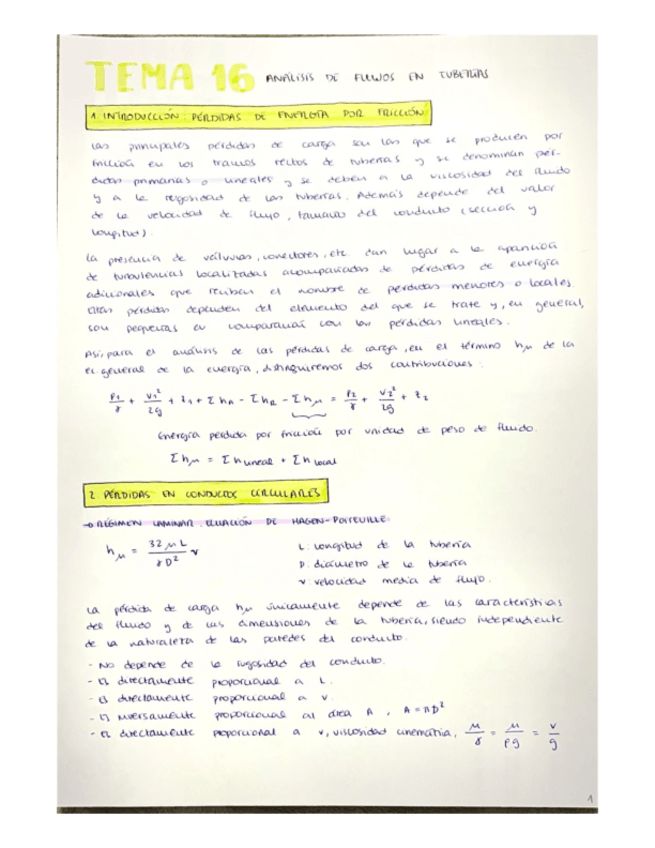 TEMA 16 ANÁLISIS DE FLUJOS EN TUBERÍAS
1. INTRODUCCIÓN: PÉRDIDAS DE ENERGÍA POR FRICCIÓN
Las principales pérdidas de carga son las que se producen por
fricción en los tramos rectos de tuberías y se denominan pér-
didas primarias o lineales y se deben a la viscosidad del fluido
y a la rugosidad de las tuberías. Además depende del valor
de la velocidad de flujo, tamaño del conducto (sección y
longitud).
La presencia de válvulas, conectores, etc dan lugar a la aparición
de turbulencias localizadas acompañadas de pérdidas de energía
adicionales que reciben el nombre de pérdidas menores o locales.
Estas pérdidas dependen del elemento del que se trate y, en general,
son pequeñas en comparación con las pérdidas lineales.
Así, para el análisis de las pérdidas de carga, en el término hμ de la
ec general de la energía, distinguiremos dos contribuciones:
P1/γ + V1²/2g + z1 + Σ hA - Σ hR - Σ hμ = P2/γ + V2²/2g + z2
Energía perdida por fricción por unidad de peso de fluido.
Σ hμ = Σ h lineal + Σ h local
2. PÉRDIDAS EN CONDUCTOS CIRCULARES
→ RÉGIMEN LAMINAR, ECUACIÓN DE HAGEN-POISEUILLE:
hμ = 32 μ L / γ D² v
L: longitud de la tubería
D: diámetro de la tubería
v: velocidad media de flujo.
La pérdida de carga hμ únicamente depende de las características
del fluido y de las dimensiones de la tubería, siendo independiente
de la naturaleza de las paredes del conducto.
- No depende de la rugosidad del conducto.
- Es directamente proporcional a L.
- Es directamente proporcional a v.
- Es inversamente proporcional al área A, A = πD²
- Es directamente proporcional a ν, viscosidad cinemática, μ/γ = μ/ρg = ν/g
1